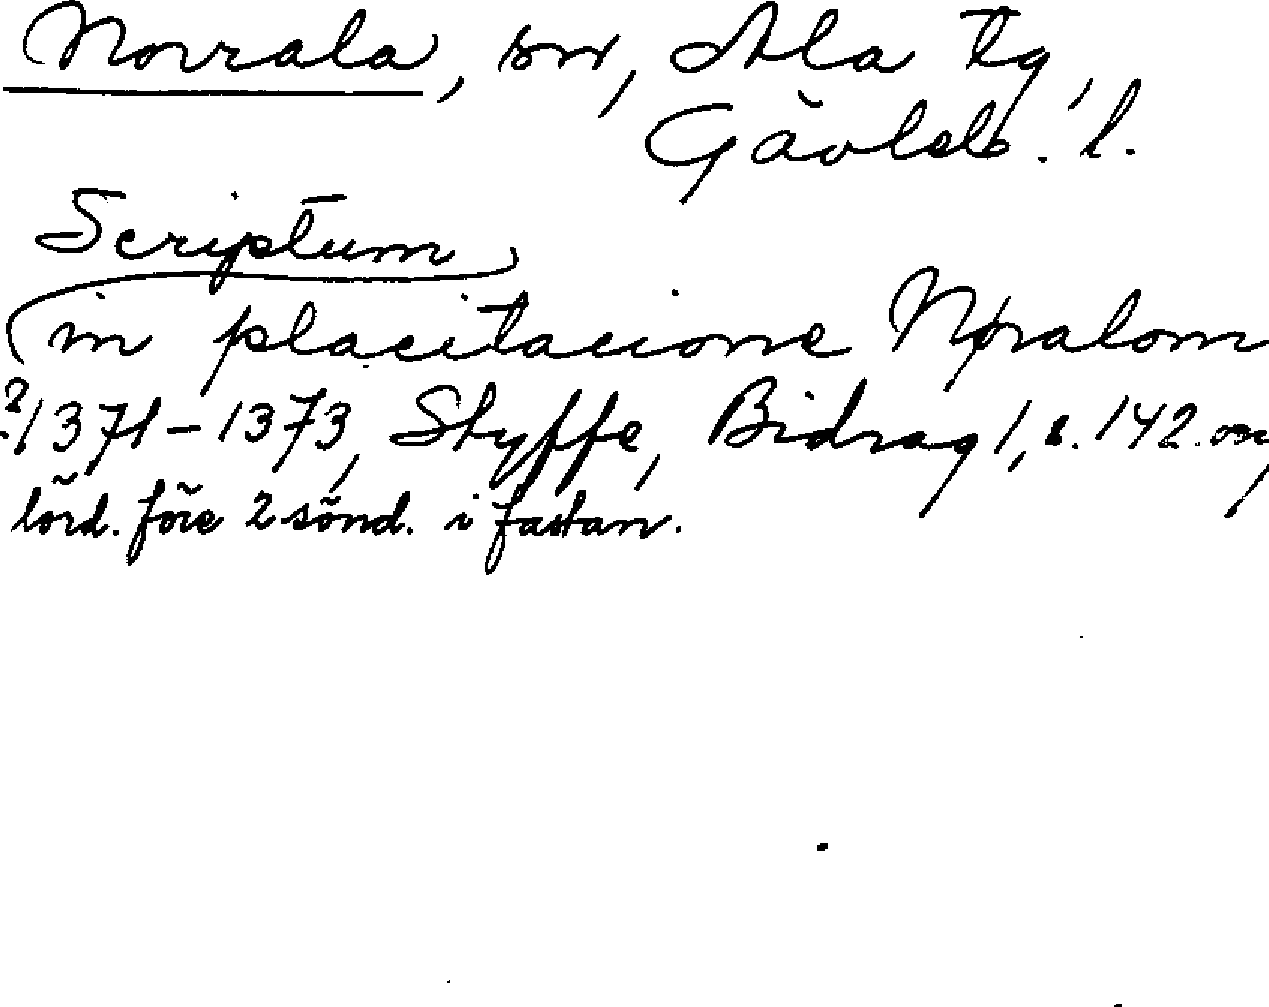 Norrala, sn, Ala tg,
Gävleb. l.
Scriptum
in placitacione Nøralom
?/1371-1373, Styffe, Bidrag 1, s. 142. or,
lörd. före 2 sönd. i fastan.